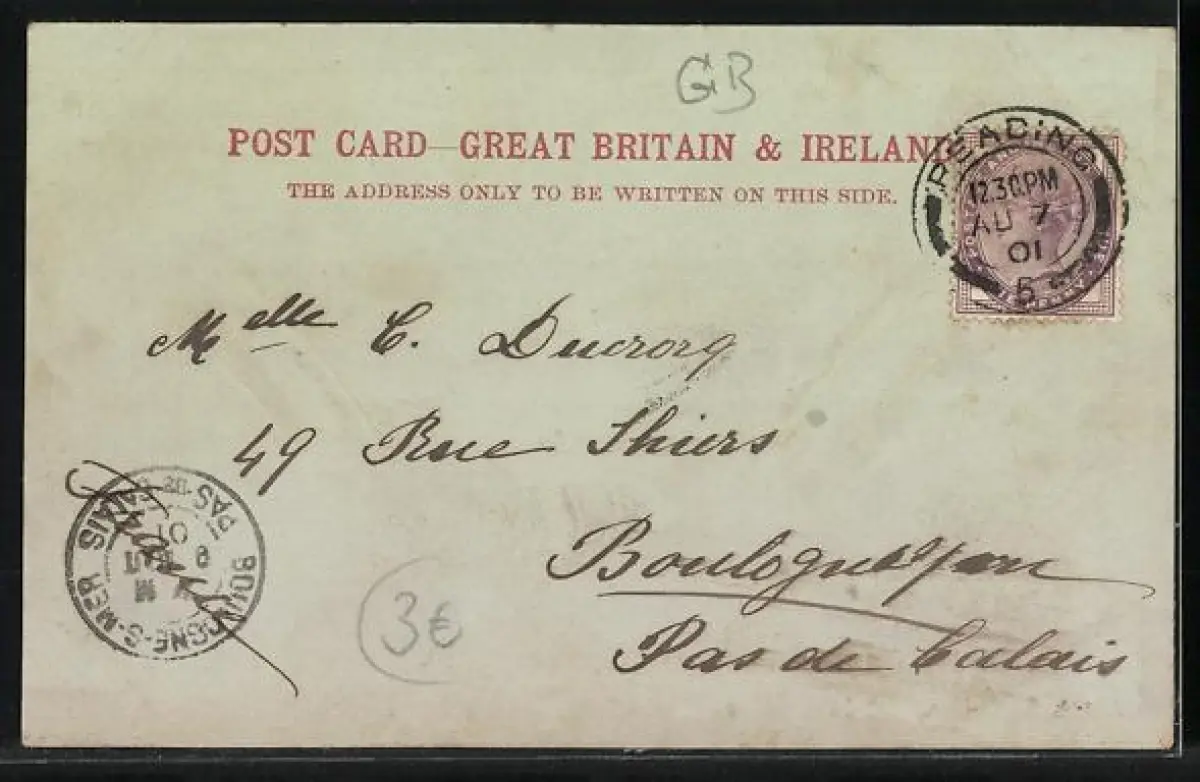 GB
POST CARD—GREAT BRITAIN & IRELAND
THE ADDRESS ONLY TO BE WRITTEN ON THIS SIDE.
READING
12.30PM
AU 7
01
5
Melle C. Ducrocq
49 Rue Thiers
Boulogne s/mer
Pas de Calais
BOULOGNE-S-MER
PAS-DE-CALAIS
8
01
3€